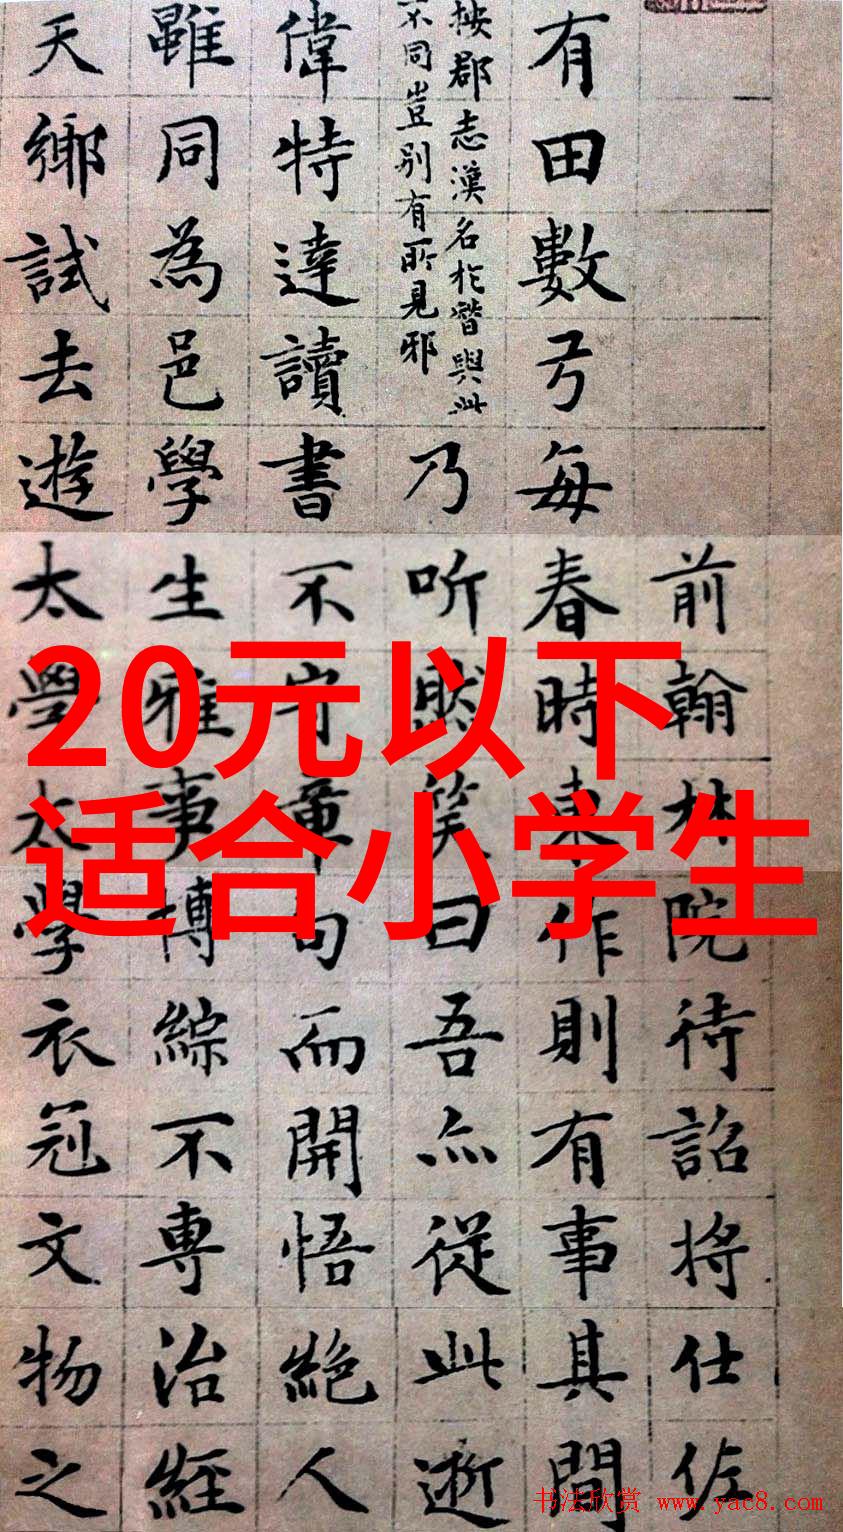 20元以下
适合小学生
前翰林院待詔将仕佐
有田數弓每春時東作則有事其間
按郡志漢名於朁與此
不同豈别有所見邪
乃听然笑曰吾亦從此逝
偉特達讀書不守章句而開悟絕人
雖同為邑學生雅事博綜不專治經
天鄉試去遊太學太學衣冠文物之
书法欣赏 www.yac8.com